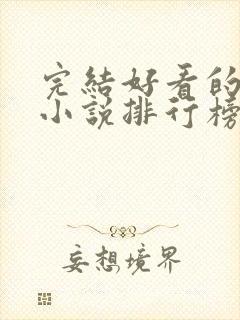 完結好看的
小說排行榜
妄想境界